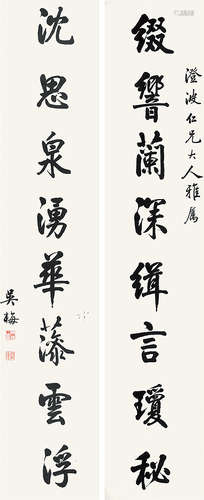 澄波仁兄大人雅属
缀響蘭深緝言瓊秘
沈思泉湧華藻雲浮
吳梅